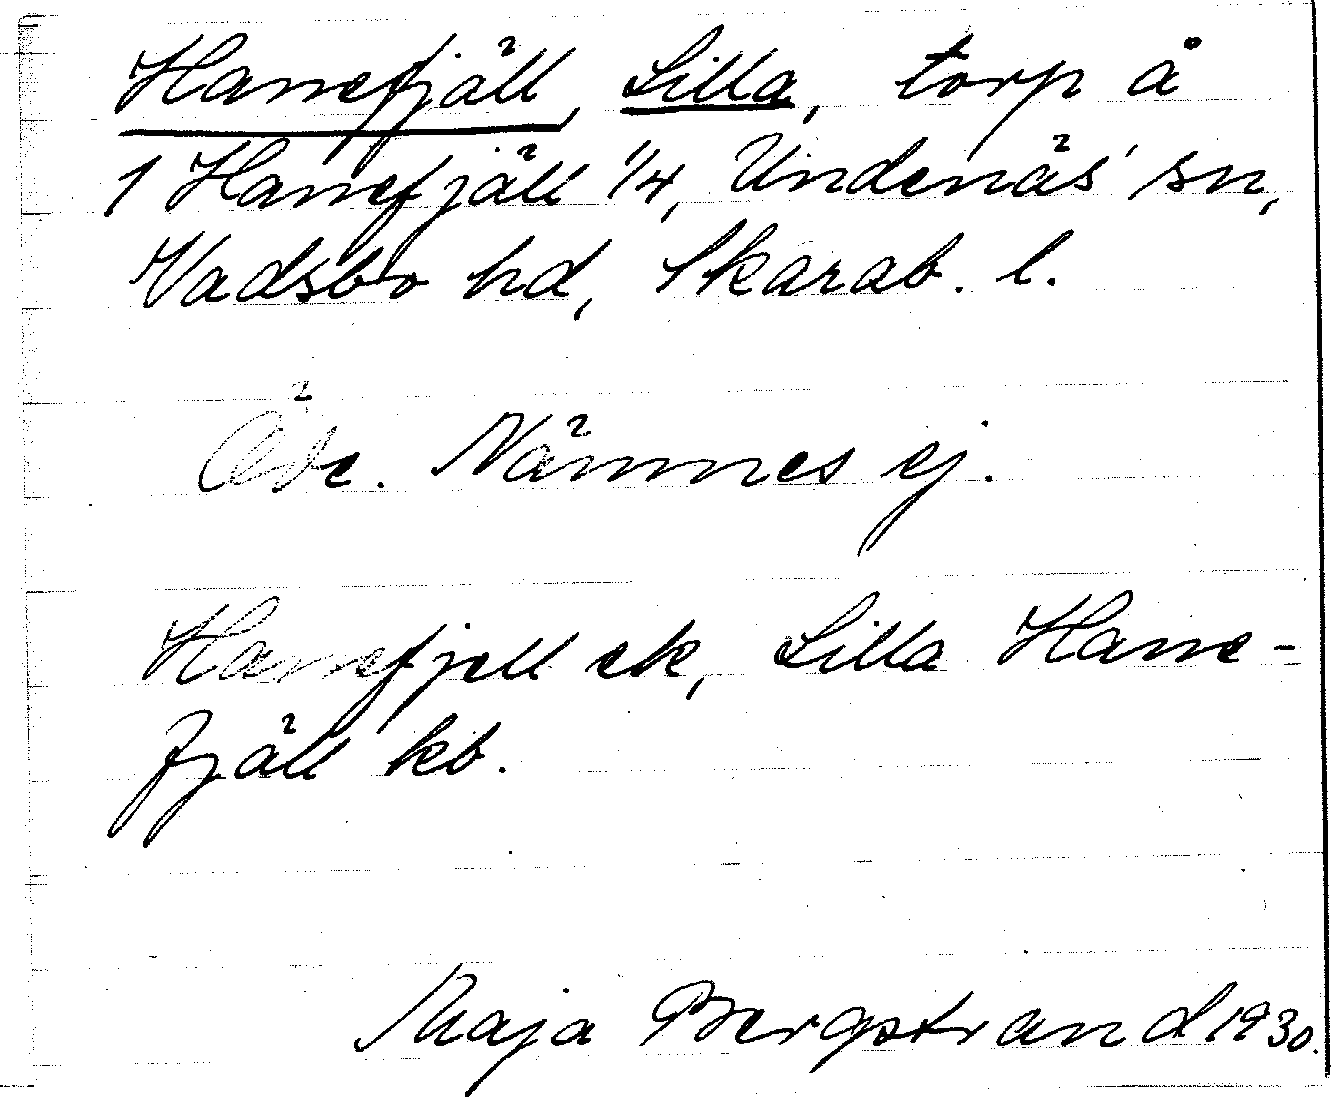 Hanefjäll, Lilla, torp å
1 Hanefjäll 1/4, Undenäs sn,
Vadsbo hd, Skarab. l.
Nämnes ej.
Hanefjell ek, Lilla Hane-
fjäll kb.
Maja Bergstrand 1930.